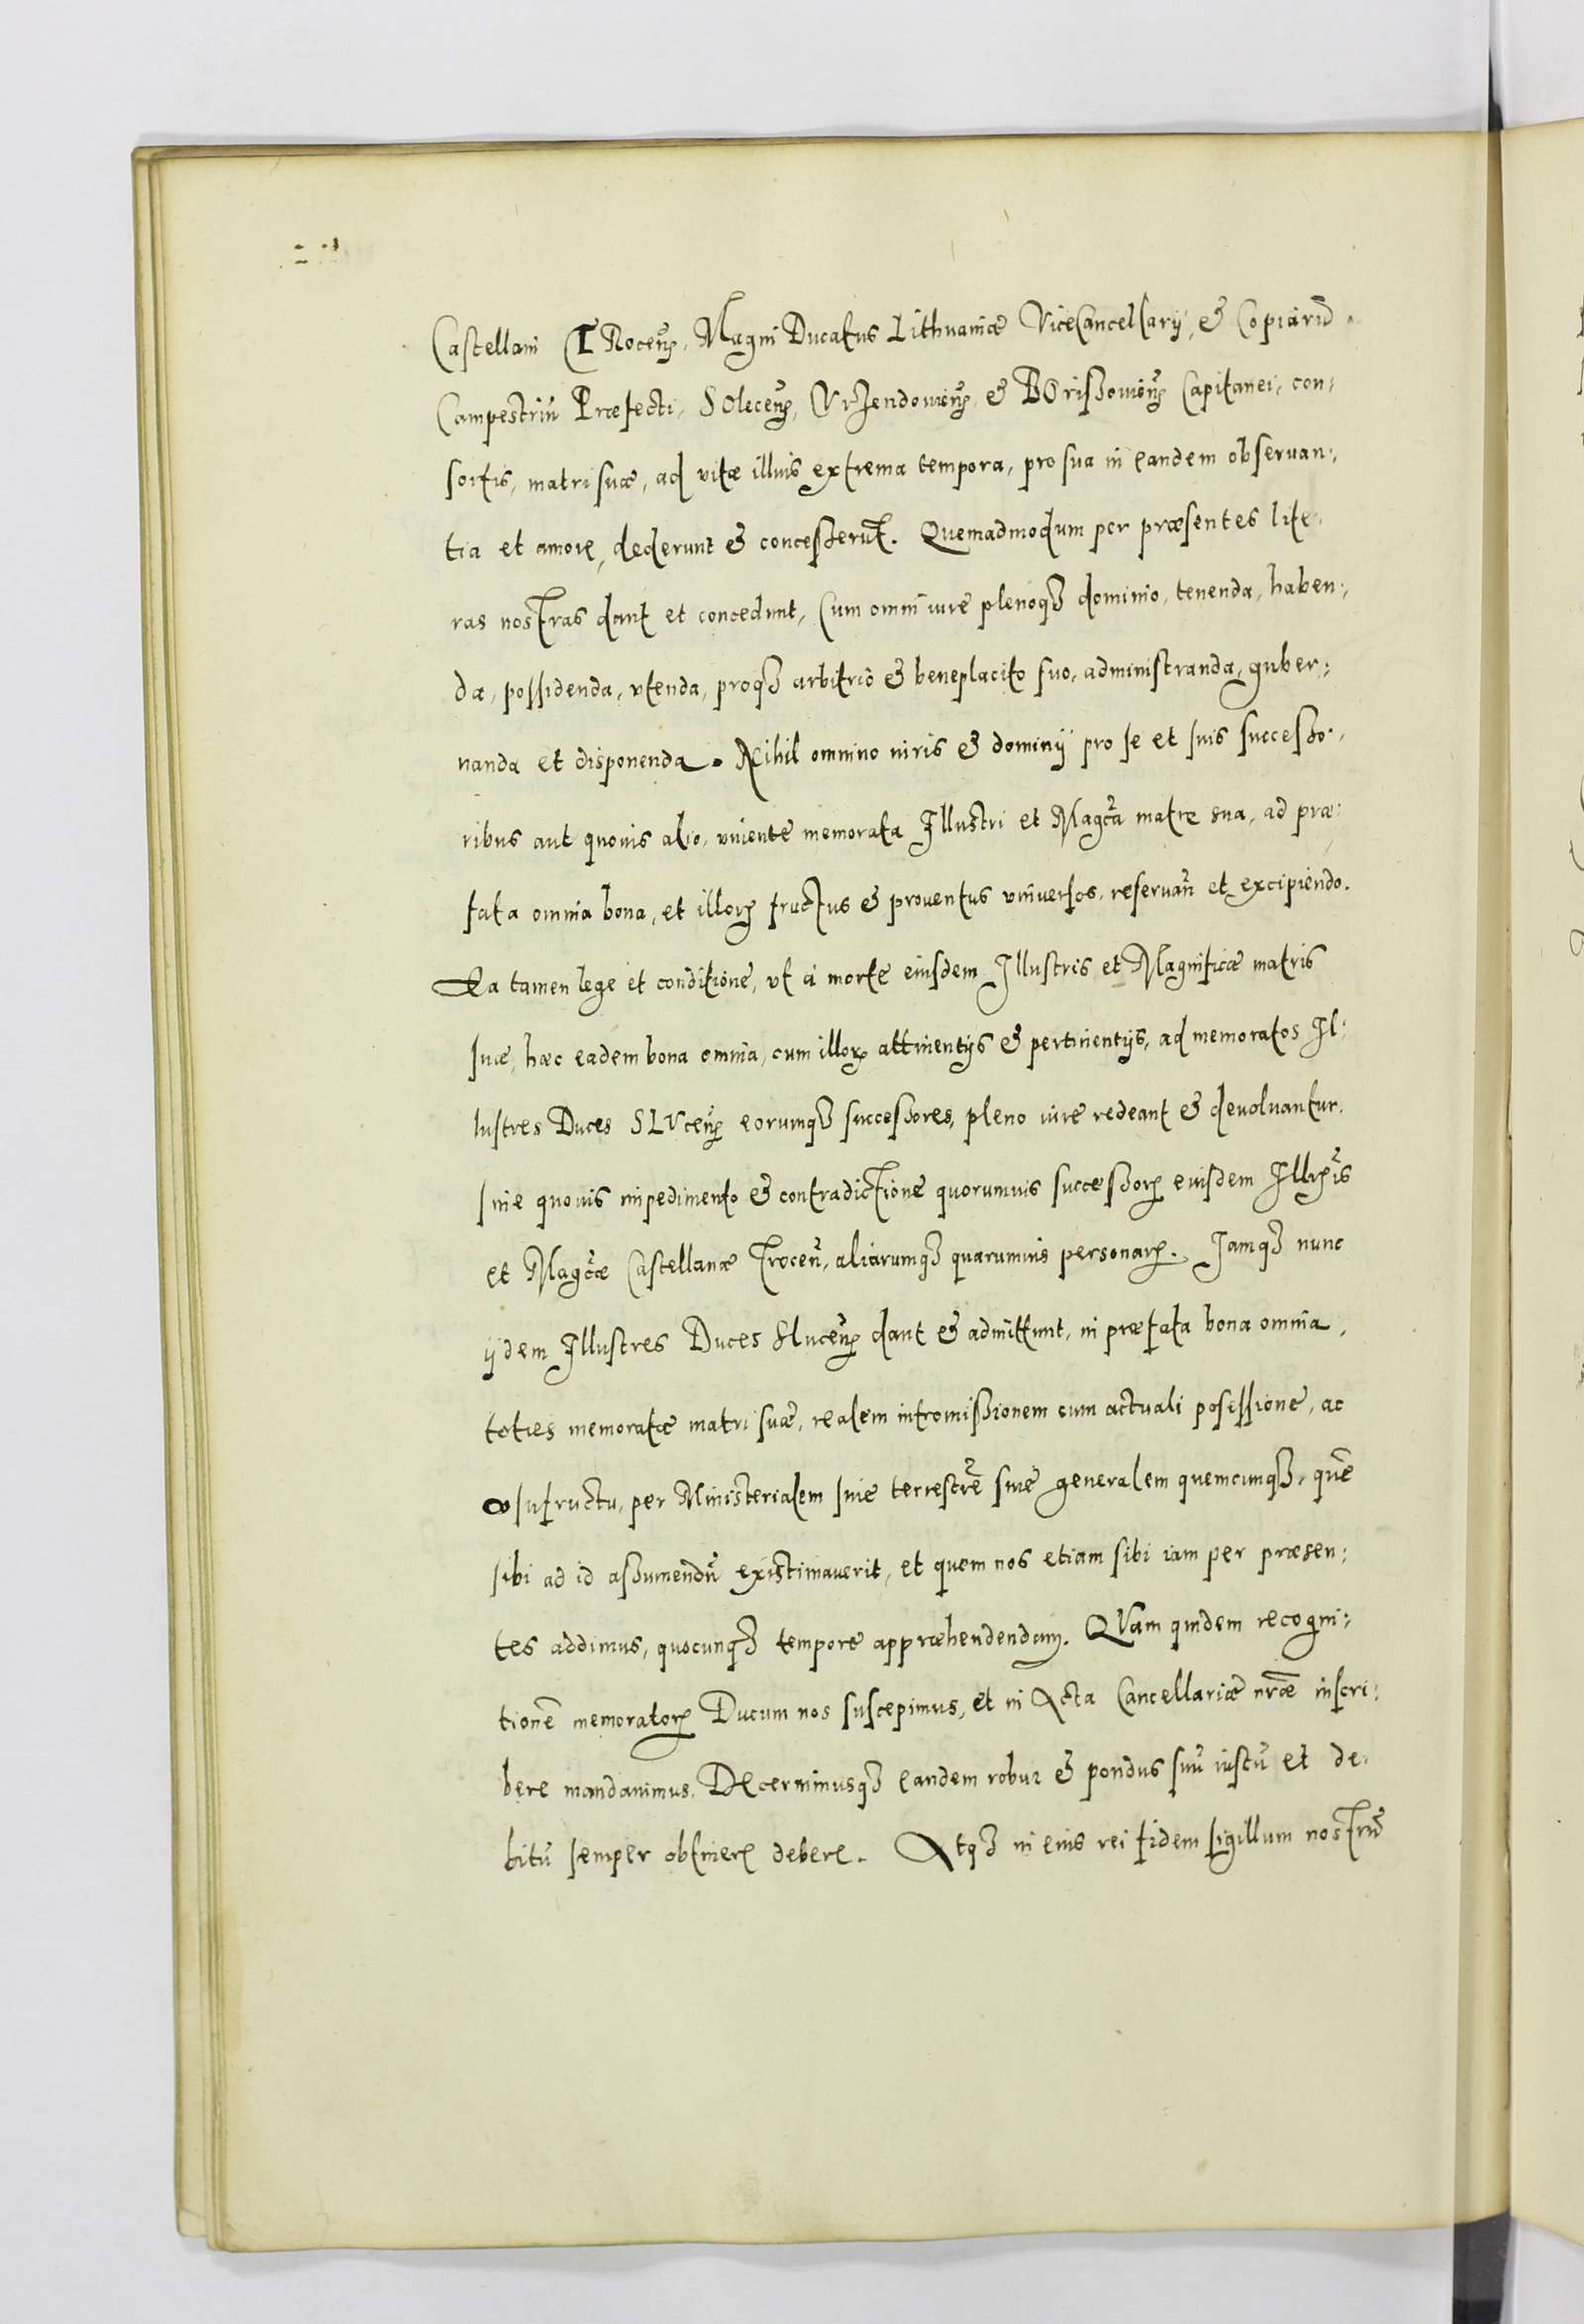 Castellani TRoceñ, Magni Ducatus Lithvaniæ ViceCancellarij, & Copiarū
Campestriū Præfecti, SOleceñ, Vrzendovieñ, & BOrissovieñ Capitanei, con:
sortis, matri suæ, ad vitæ illius extrema tempora, pro sua in eandem observan:
tia et amore, dederunt & concesserūt. Quemadmodum per præsentes lite:
ras nostras dant et concedunt, Cum omni iure plenoqз dominio, tenenda, haben:
da, possidenda, vtenda, proqз arbitrio & beneplacito suo, administranda, guber:
nanda et disponenda. Nihil omnino iuris & dominij pro se et suis successo:
ribus aut quovis alio, viuente memorata Illustri et Magᶜᵃ matre sua, ad præ:
fata omnia bona, et illorꝝ fructus & proventus vniversos, reservañ et excipiendo.
Ea tamen lege et conditione, vt a morte eiusdem Illustris et Magnificæ matris
suæ, hæc eadem bona omnia, cum illorꝝ attinentijs & pertinentijs, ad memoratos Il:
lustres Duces SLVceñ eorumqз successores, pleno iure redeant & devoluantur.
sine quovis impedimento & contradictione quorumuis successorꝝ eiusdem Illris
et Magᶜæ Castellanæ Troceñ, aliarumqз quarumuis personarꝝ. Iamqз nunc
ijdem Illustres Duces Sluceñ dant & admittunt, in præfata bona omnia,
toties memoratæ matri suæ, realem intromissionem cum actuali posessione, ac
vsufructu, per Ministerialem siue terrestrē siue generalem quemcunqз, quē
sibi ad id assumendū existimaverit, et quem nos etiam sibi iam per præsen:
tes addimus, quocunqз tempore appræhendendam. QVam quidem recogni:
tionē memoratorꝝ Ducum nos suscepimus, et in Acta Cancellariæ nr̄æ inscri:
bere mandavimus. Decernimusqз eandem robur & pondus suū iustū et de:
bitū semper obtinere debere. Atqз in eius rei fidem sigillum nostrū